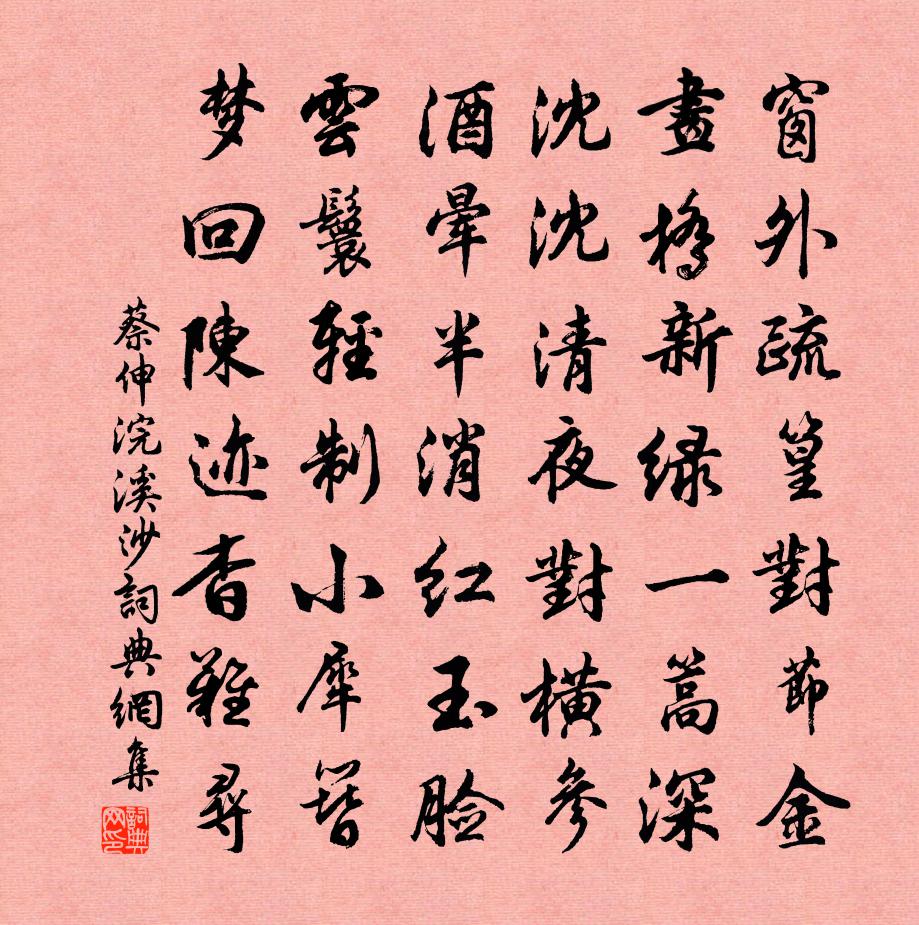 窗外疏篁對節金
畫橋新緑一篙深
沈沈清夜對橫參
酒暈半消红玉脸
雲鬟輕制小犀簪
梦回陳迹杳難尋
蔡伸浣溪沙詞典網集
詞典网印